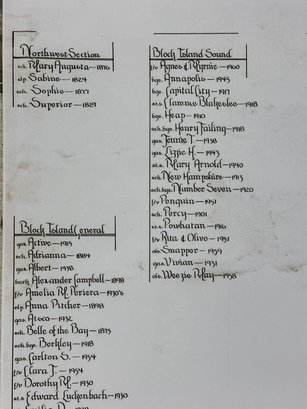 Northwest Section
sch. Mary Augusta—1876
slp. Sabine—1824
sch. Sophie—1877
sch. Superior—1829
Block Island General
gas. Active—1915
sch. Adrianna—1884
gas. Albert—1938
bark Alexander Campbell—1898
f/v Amelia M. Periera—1930's
slp. Anna Pitcher—1898
gas. Ateco—1932
sch. Belle of the Bay—1875
sch. bge. Berkley—1918
gas. Carlton S.—1934
f/v Clara T.—1934
f/v Dorothy M.—1930
st.s Edward Luckenbach—1930
Block Island Sound
f/v Agnes & Myrnie—1960
bge. Annapolis—1945
bge. Capital City—1917
st.s Clarence Blakeslee—1918
bge. Heap—1910
sch. bge. Henry Failing—1918
gas. Jennie T.—1938
gas. Lizzie H.—1943
st.s Mary Arnold—1940
sch. New Hampshire—1913
sch. bge. Number Seven—1920
f/v Penguin—1951
sch. Percy—1901
st.s Powhatan—1916
f/v Rita & Olive—1951
ols. Snapper—1939
gas. Vivian—1931
ols. Weezie May—1938